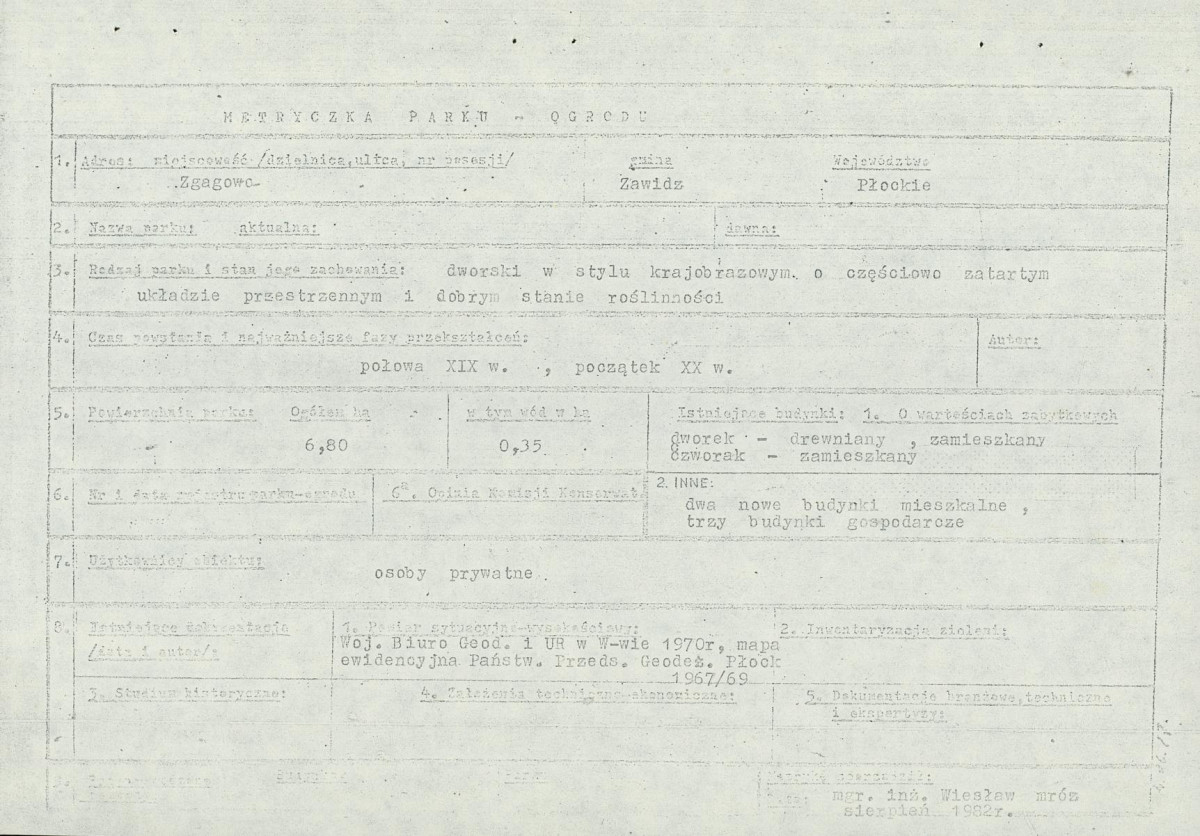 METRYCZKA PARKU - OGRODU
1. Adres: miejscowość /dzielnica, ulica, nr posesji/ gmina Województwo
Zgagowo Zawidz Płockie
2. Nazwa parku: aktualna: dawna:
3. Rodzaj parku i stan jego zachowania: dworski w stylu krajobrazowym. o częściowo zatartym
układzie przestrzennym i dobrym stanie roślinności
4. Czas powstania i najważniejsze fazy przekształceń: Autor:
połowa XIX w. , początek XX w.
5. Powierzchnia parku: Ogółem ha w tym wód w ha
6,80 0,35
Istniejące budynki: 1. O wartościach zabytkowych
dworek - drewniany , zamieszkany
czworak - zamieszkany
6. Nr i data rejestru parku-ogrodu 6a. Opinia Komisji Konserwat.
2. INNE:
dwa nowe budynki mieszkalne ,
trzy budynki gospodarcze
7. Użytkownicy obiektu:
osoby prywatne.
8. Istniejąca dokumentacja
/data i autor/:
1. Pomiar sytuacyjno-wysokościowy:
Woj. Biuro Geod. i UR w W-wie 1970r, mapa
ewidencyjna Państw. Przeds. Geodez. Płock
1967/69
2. Inwentaryzacja zieleni:
3. Studium historyczne: 4. Założenia techniczno-ekonomiczne: 5. Dokumentacje branżowe, techniczne
i ekspertyzy:
mgr. inż. Wiesław mróz
sierpień 1982r.